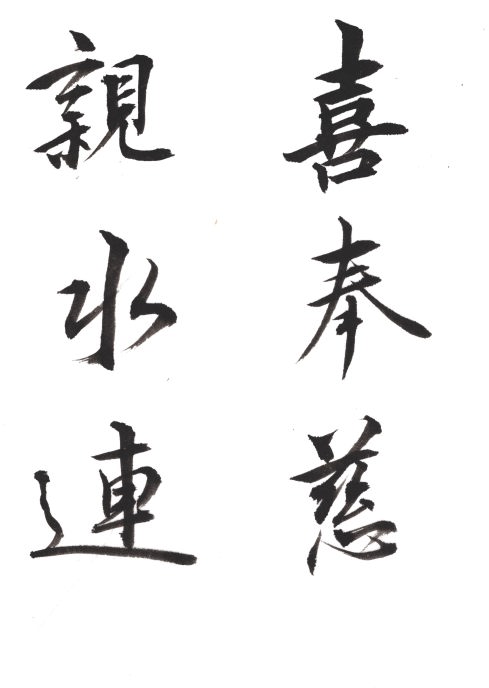 喜奉慈
親水連